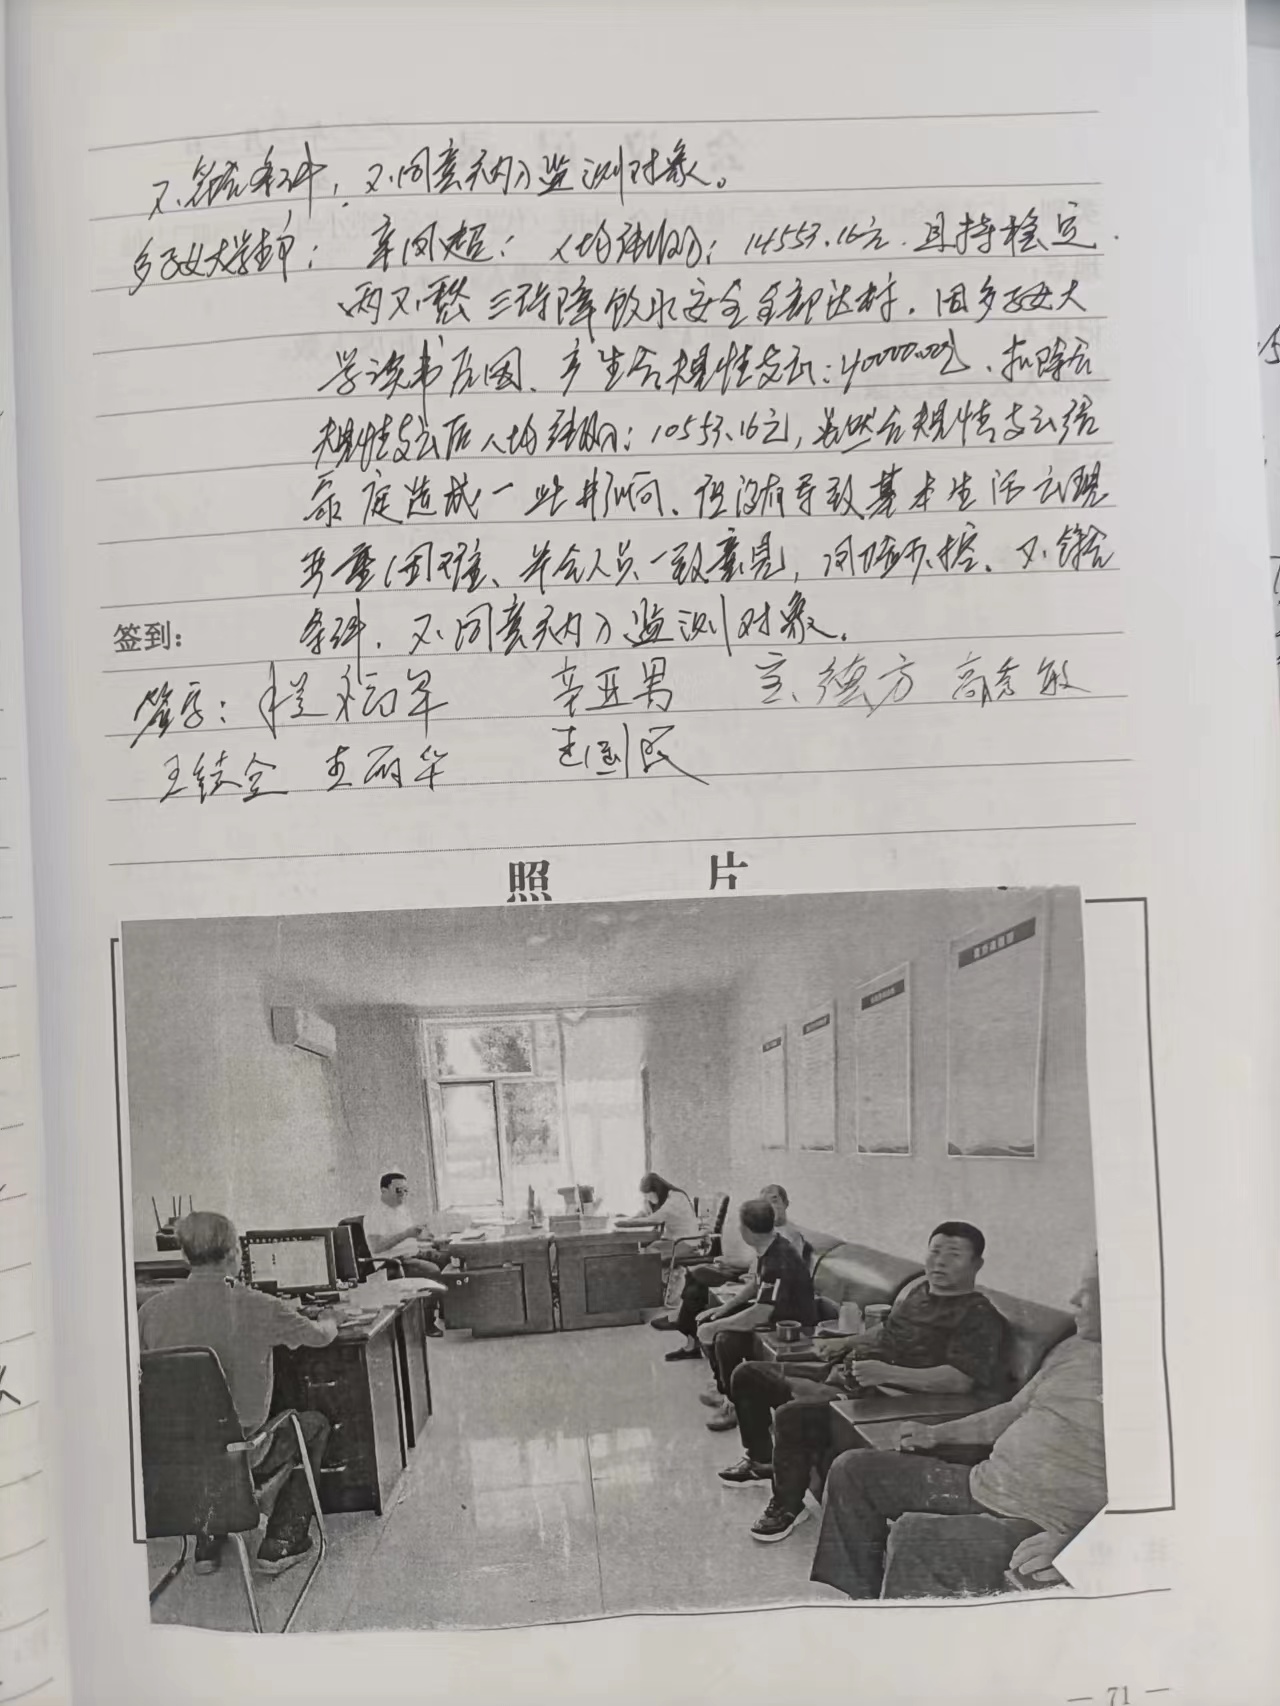 不符合条件，不同意纳入监测对象。
多子女大学生户：辛凤超：人均纯收入：14553.16元.且持稳定.
两不愁三保障饮水安全全部达标.因多子女大
学读书原因、产生合规性支出：40000.00元、扣除合
规性支出后人均纯收入：10553.16元，虽然合规性支出给
家庭造成一些影响、但没有导致基本生活出现
严重困难、参会人员一致意见，风险可控、不符合
签到：条件.不同意纳入监测对象。
签字：程福军 辛亚男 德方 高秀敏
王铁全 李丽华 国民
照片
— 71 —